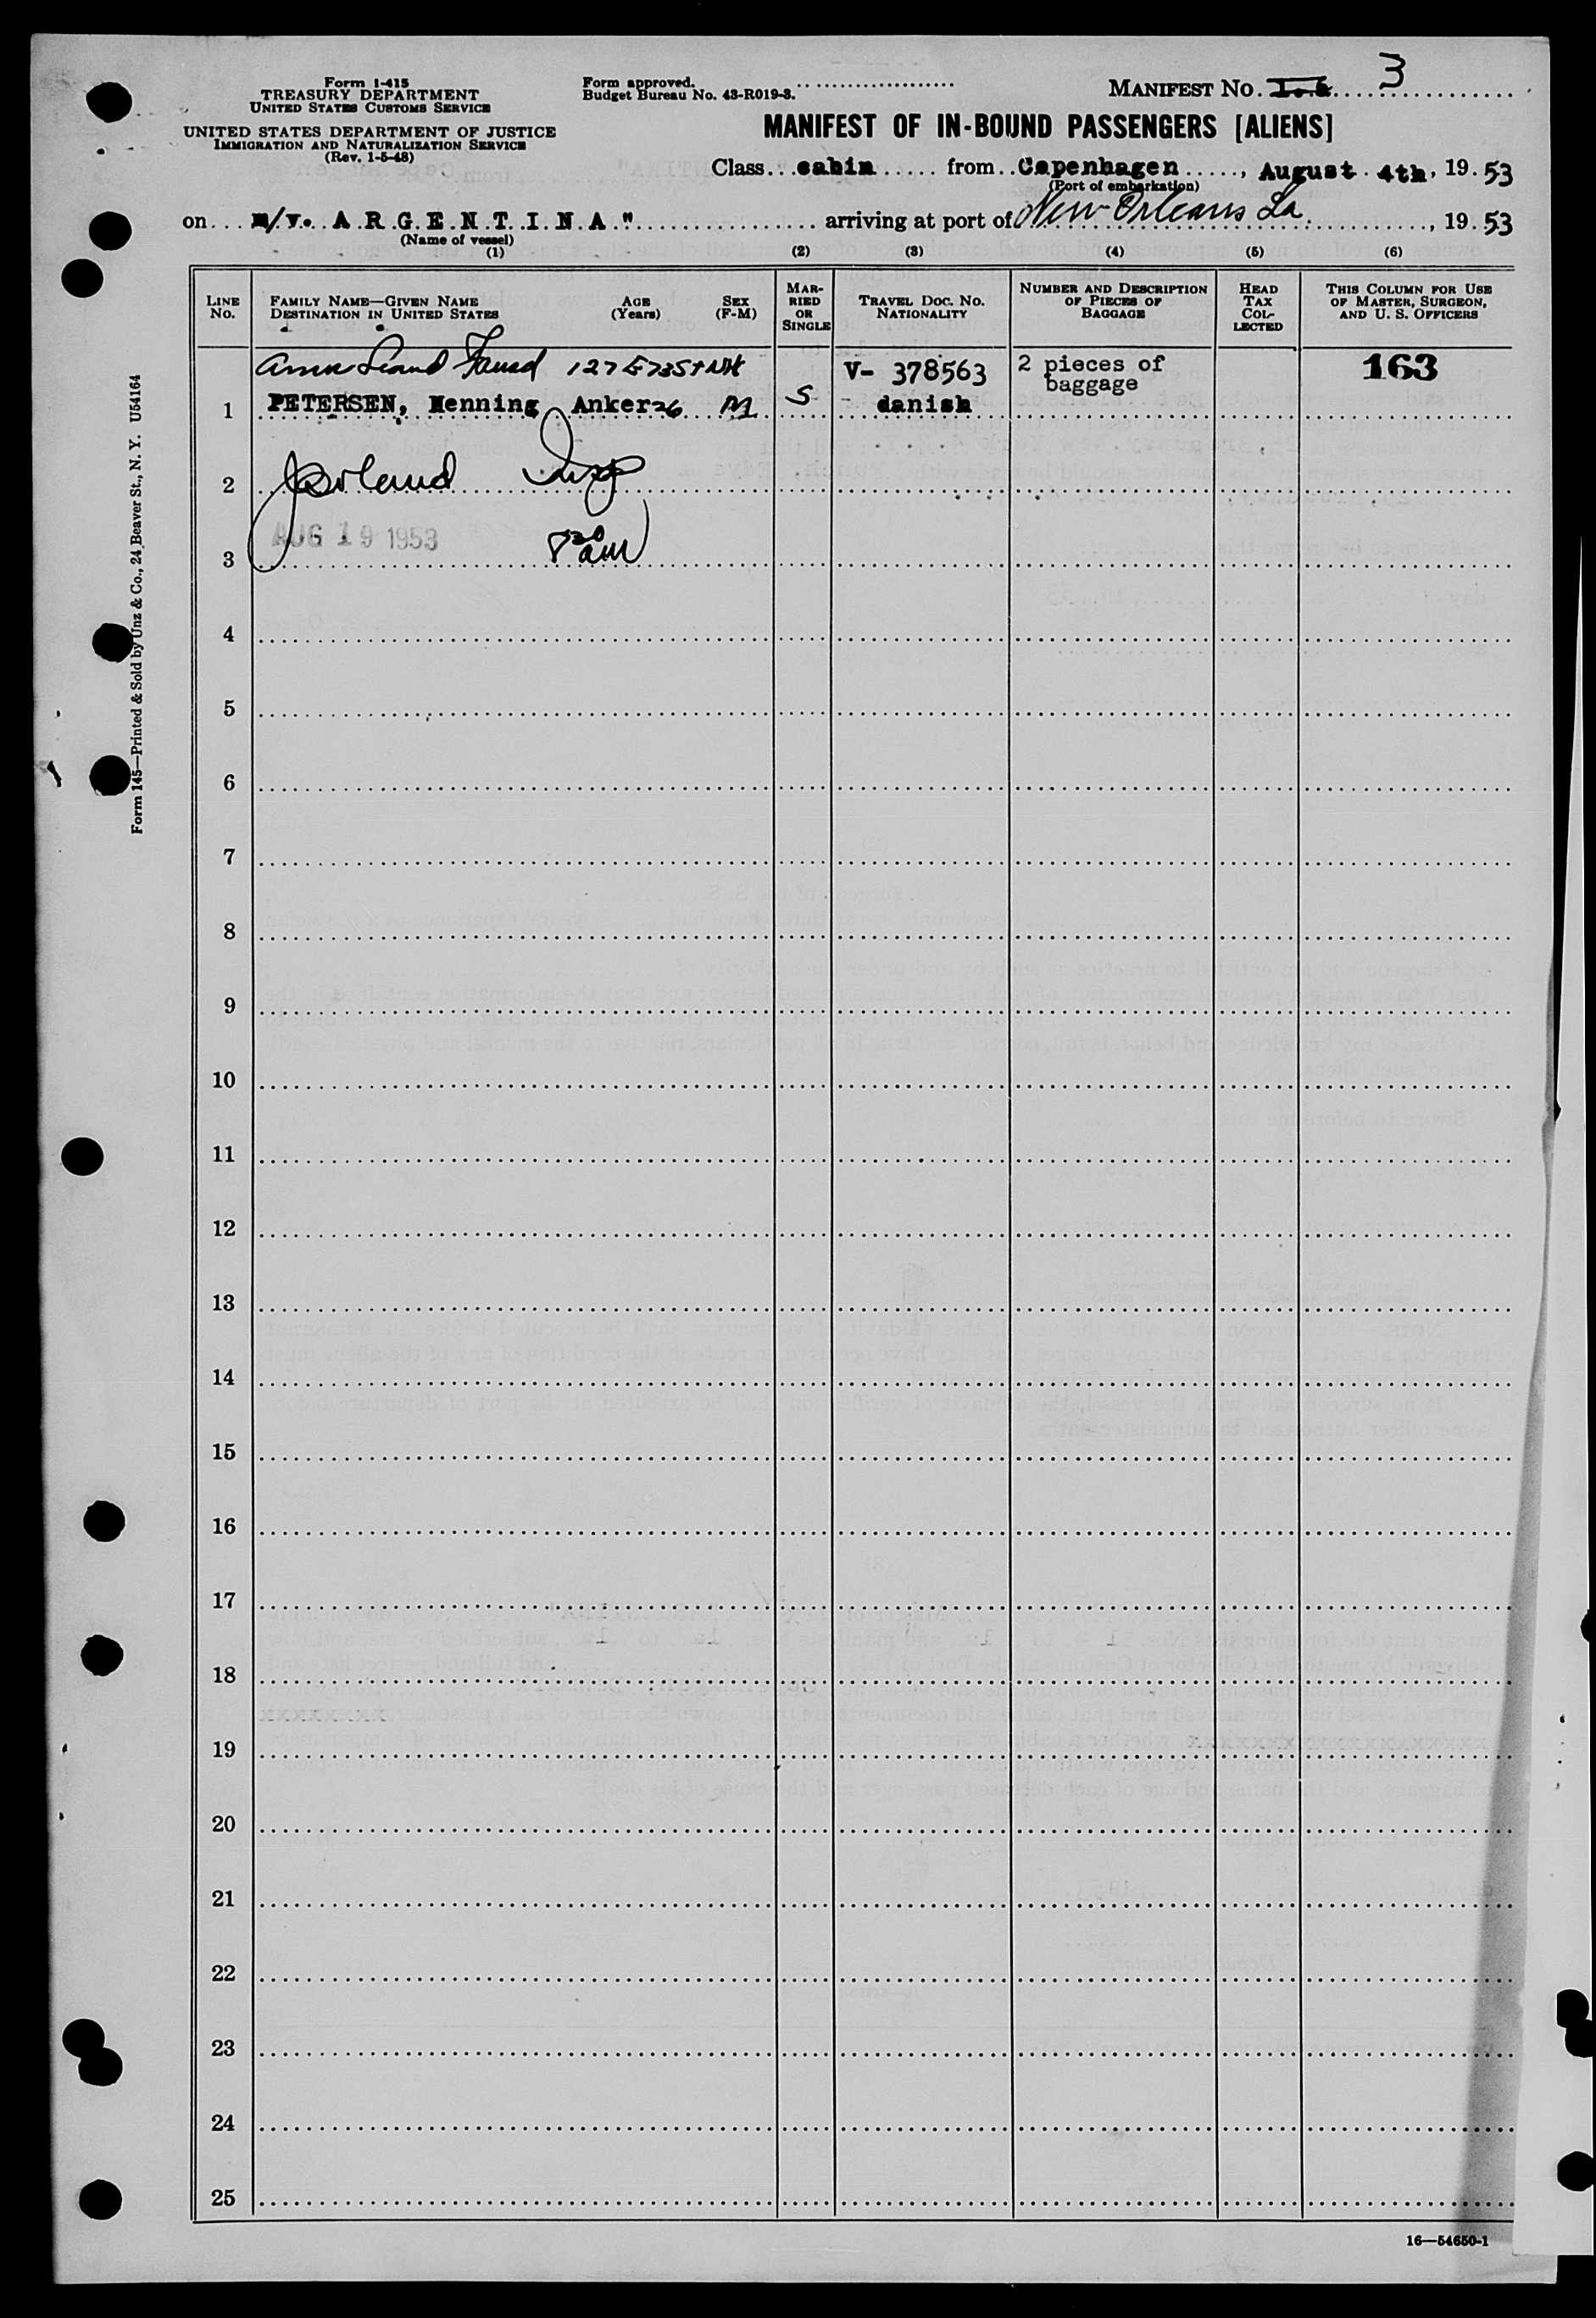 Form I-415
TREASURY DEPARTMENT
UNITED STATES CUSTOMS SERVICE
UNITED STATES DEPARTMENT OF JUSTICE
IMMIGRATION AND NATURALIZATION SERVICE
(Rev. 1-5-48)
Form approved.
Budget Bureau No. 43-R019-3.
MANIFEST NO. 3
MANIFEST OF IN-BOUND PASSENGERS [ALIENS]
Class cabin from Copenhagen, August 4th, 19 53
(Port of embarkation)
on m/v. A R G E N T I N A " arriving at port of New Orleans La., 19 53
(Name of vessel)
(1) (2) (3) (4) (5) (6)
LINE NO.
FAMILY NAME—GIVEN NAME
DESTINATION IN UNITED STATES
AGE (Years)
SEX (F-M)
MARRIED OR SINGLE
TRAVEL DOC. NO.
NATIONALITY
NUMBER AND DESCRIPTION OF PIECES OF BAGGAGE
HEAD TAX COLLECTED
THIS COLUMN FOR USE OF MASTER, SURGEON, AND U. S. OFFICERS
127 E 73 St
V- 378563
2 pieces of
baggage
163
1 PETERSEN, Henning Anker 26 M S danish
2
AUG 19 1953
3
4
5
6
7
8
9
10
11
12
13
14
15
16
17
18
19
20
21
22
23
24
25
16—54650-1
Form 145—Printed & Sold by Unz & Co., 24 Beaver St., N. Y. U54164